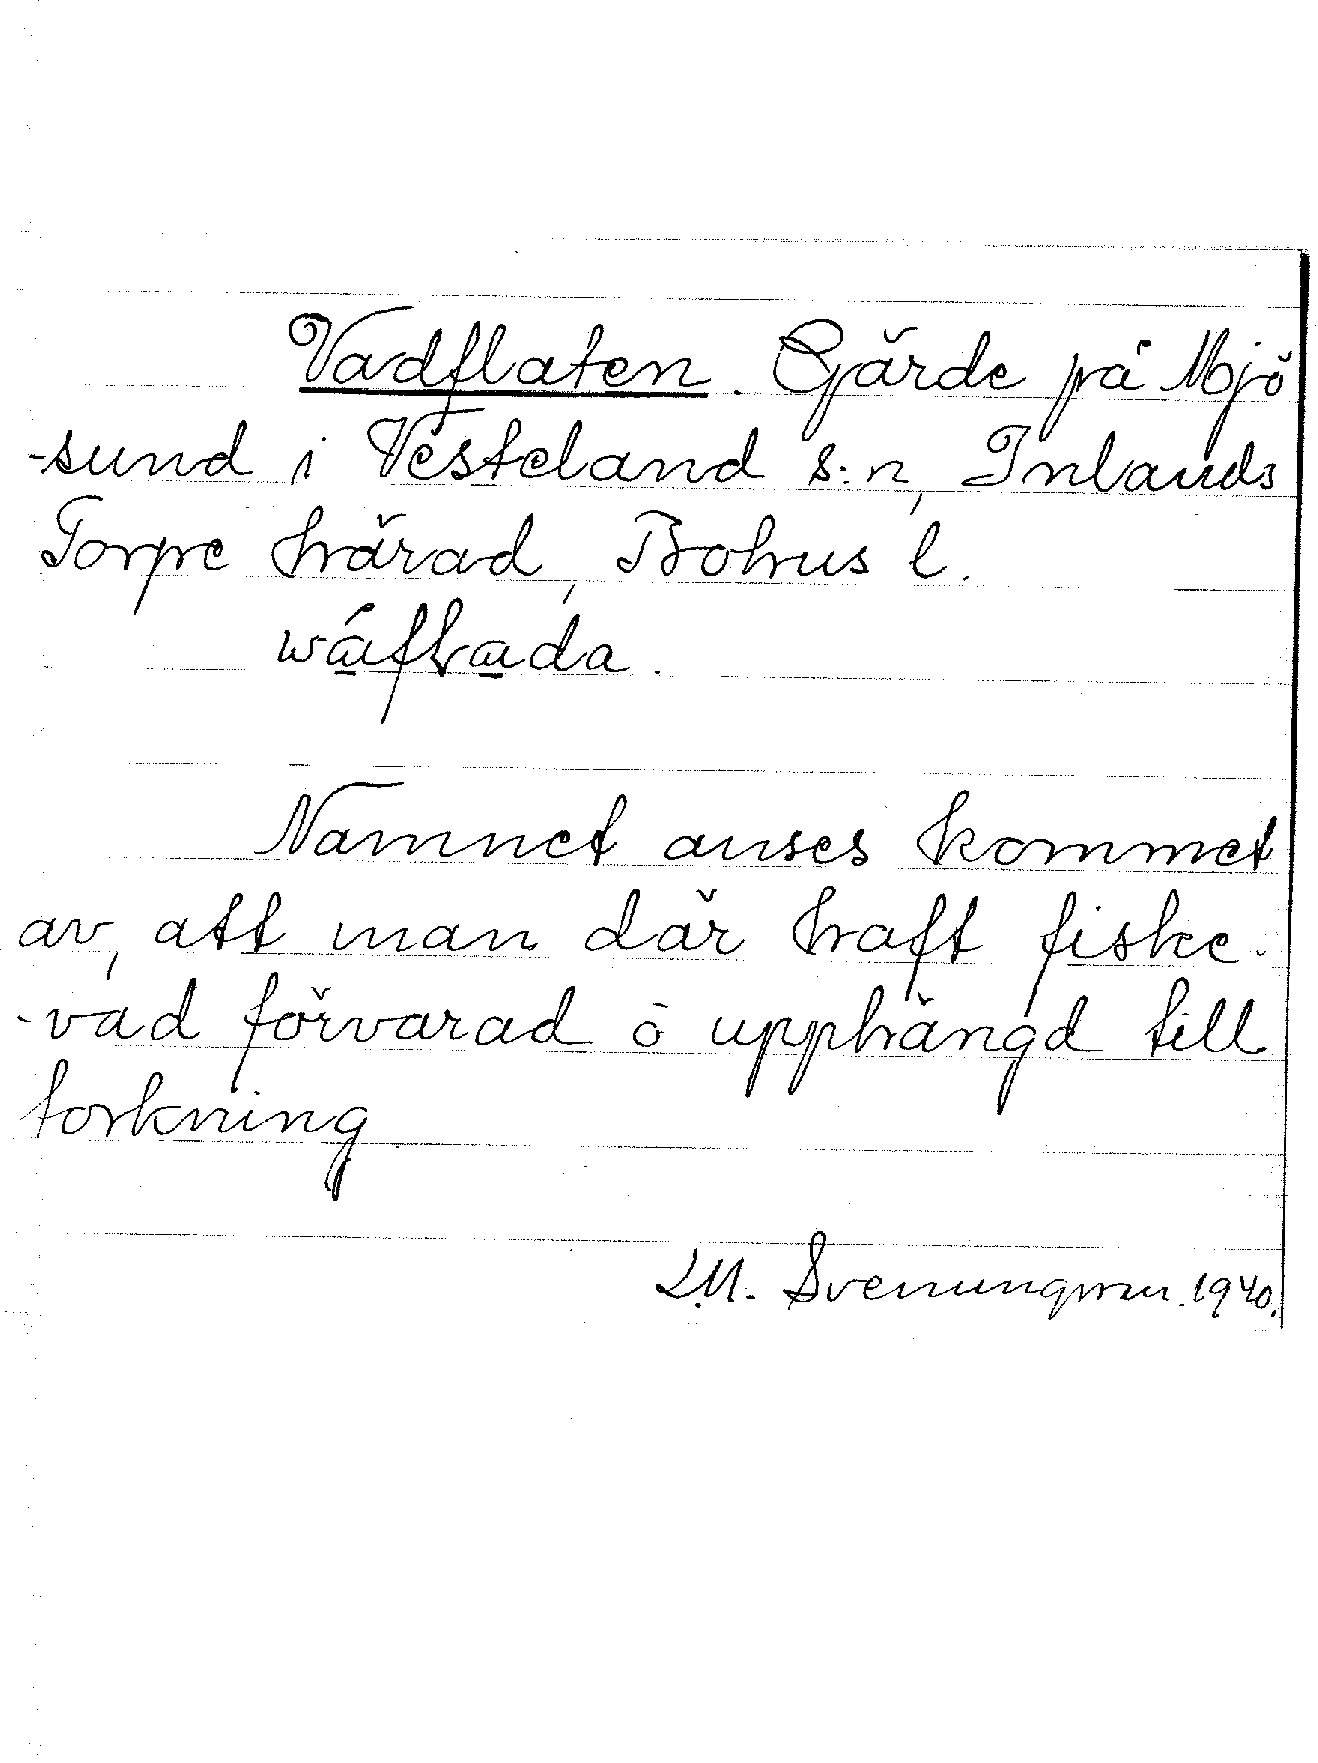 Vadflaten. Gärde på Mjö
-sund i Vesteland s:n, Inlands
Torpe härad, Bohus l.
wáflada.
Namnet anses kommet
av, att man där haft fiske-
-vad förvarad o upphängd till
torkning
L.M. Svenungsson. 1940.